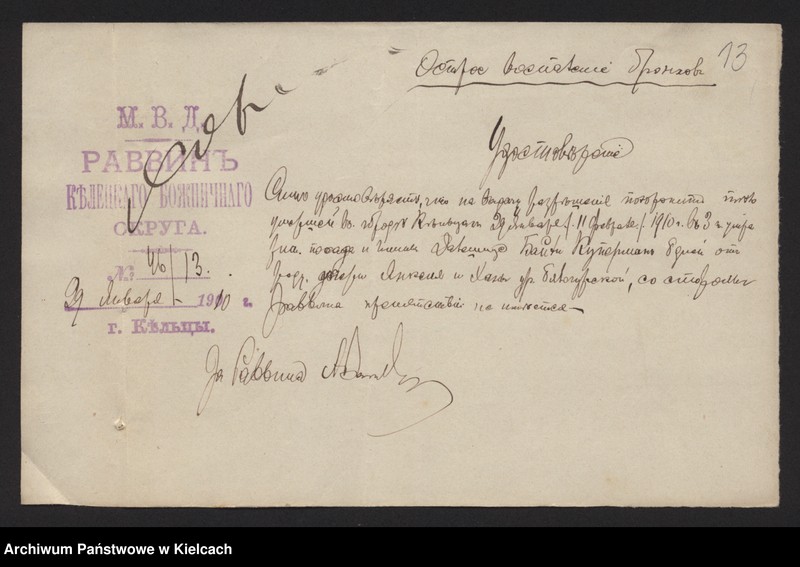 Острое воспаленіе бронховъ
13
М. В. Д.
РАВВИНЪ
КѢЛЕЦКАГО БОЖНИЧНАГО
ОКРУГА.
№ 46/13.
29 Января 1910 г.
г. Кѣльцы.
Удостовѣреніе
Симъ удостовѣряетъ, что на выдачу разрѣшенія похоронить тѣло
умершей въ городѣ Кѣльцахъ 29 Января /11 Февраля/ 1910 г. въ 3 ч. утра
посада и гмины Купермана отъ
дочери Анкеля и Ханы ур. со стороны
Раввина препятствія не имѣется
За Раввина
Archiwum Państwowe w Kielcach